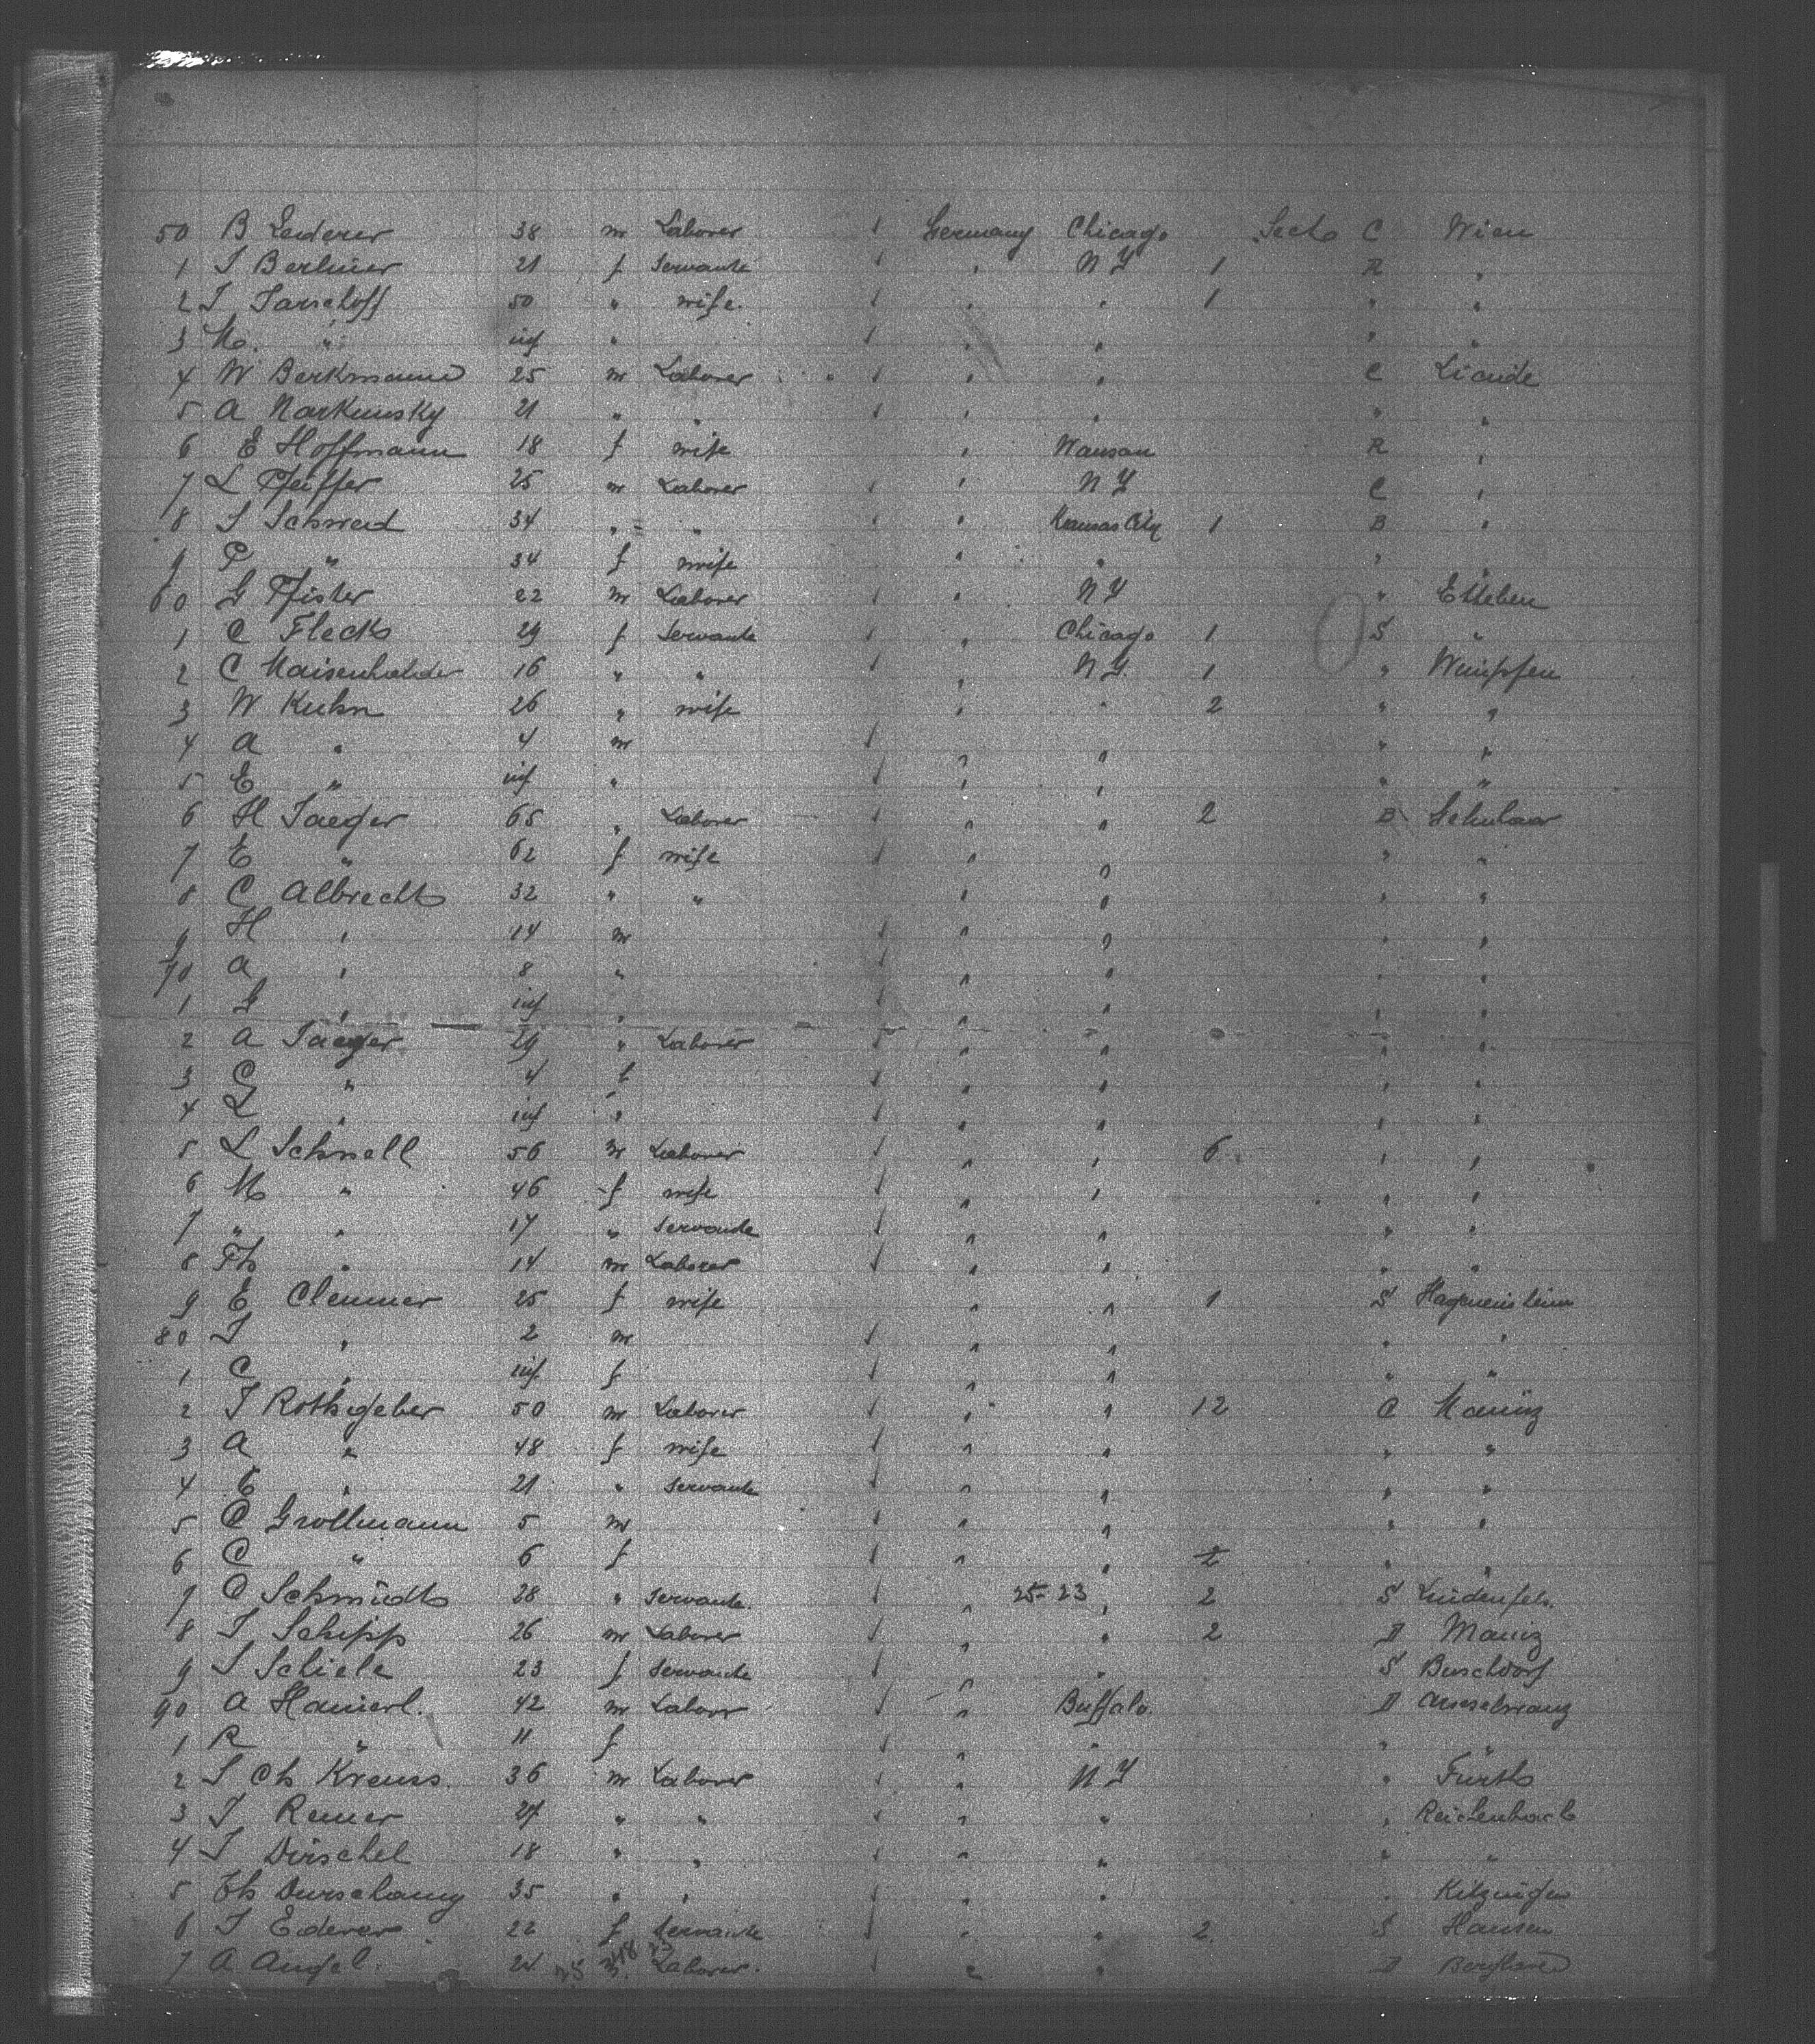 50 B Lederer 38 m Laborer / Germany Chicago Sects C Wien
1 S Berliner 21 f Servante / " N Y 1 R "
2 I Tarschoff 50 " wife. / " " 1 " "
3 M. " inf " / " " " "
4 W Berkmann 25 m Laborer / " " C
5 A Narkunsky 21 " " / " " " "
6 E Hoffmann 18 f wife " Wausau R "
7 L Pfeiffer 25 m Laborer / " N Y C "
8 S Schweid 34 " " / " Kansas City 1 B "
9 P " 34 f wife " " " "
60 G Pfister 22 m Laborer / " N Y "
1 C Fleck 29 f Servante / " Chicago 1 S "
2 C Maisenhälder 16 " " / " N Y. 1 " Wimpfen
3 W Kuhn 26 " wife " " 2 " "
4 A " 4 m / " " " "
5 E " inf " / " " " "
6 H Jaeger 65 " Laborer / " " 2 B
7 E " 62 f wife / " " " "
8 C Albrecht 32 " " " " " "
9 H " 14 m / " " " "
70 A " 8 " / " " " "
1 G " inf " / " " " "
2 A Jaeger 29 " Laborer / " " " "
3 C " 4 f / " " " "
4 L " inf " / " " " "
5 L Schnell 56 m Laborer / " " 6 " "
6 M " 46 f wife / " " " "
7 " " 17 " Servante / " " " "
8 Th " 14 m Laborer / " " " "
9 E Clemmer 25 f wife " " 1 S
80 I " 2 m / " " " "
1 C " inf f / " " " "
2 J Rothgeber 50 m Laborer / " " 12 C Mainz
3 A " 48 f wife / " " " "
4 E " 21 " Servante / " " " "
5 C Grollmann 5 m / " " " "
6 C " 6 f / " " 2 " "
7 C Schmidt 28 " Servante. / " 25-23 " 2 S Lindenfels.
8 J Schipp 26 m Laborer / " " 2 B Mainz
9 S Schiele 23 f Servante / " " S Buschdorf
90 A Hamerl. 42 m Laborer / " Buffalo. B
1 R " 11 f / " " " "
2 J Ch Kreuss. 36 m Laborer / " N Y " Fürth
3 J Remer 27 " " / " " " Reichenbach
4 J Dirschel 18 " " / " " " "
5 35 " " / " " " Kitzingen
6 J Ederer 22 f Servante / " " 2. S Hausen
7 A Angel. 24 Laborer. / " " B